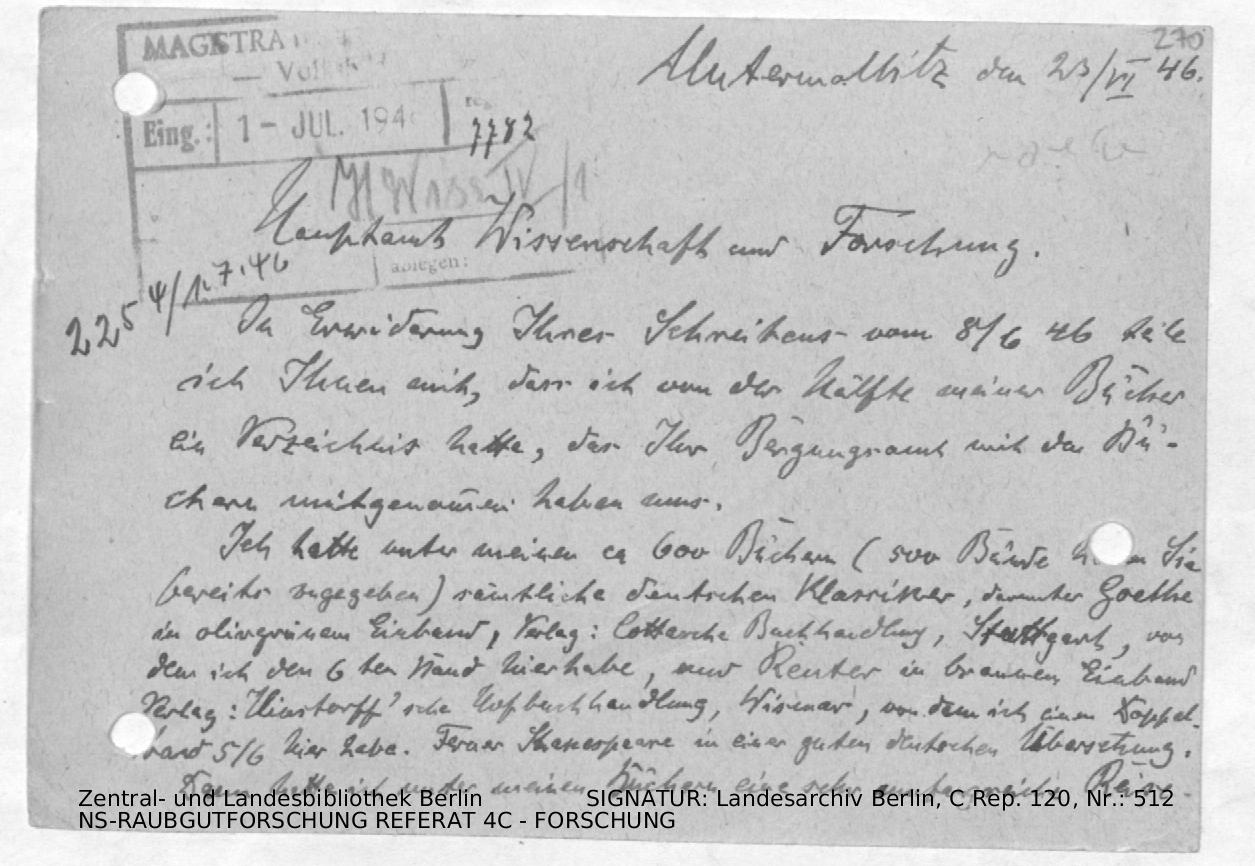 270
MAGISTRA
— Volks
Eing.: 1 - JUL. 194
7782
Untermaßfeld den 23/VI 46.
Hauptamt Wissenschaft und Forschung.
ablegen:
225 4/1.7.46
In Erwiderung Ihres Schreibens vom 8/6 46 teile
ich Ihnen mit, dass ich von der Hälfte meiner Bücher
ein Verzeichnis hatte, das Ihr Bergungsamt mit den Bü-
chern mitgenommen haben muss.
Ich hatte unter meinen ca 600 Büchern (500 Bände haben Sie
bereits zugegeben) sämtliche deutschen Klassiker, darunter Goethe
in olivgrünem Einband, Verlag: Cottasche Buchhandlung, Stuttgart, von
dem ich den 6ten Band hierhabe, und Reuter in braunem Einband
Verlag: Hinstorff'sche Hofbuchhandlung, Wismar, von dem ich einen Doppel-
band 5/6 hier habe. Ferner Shakespeare in einer guten deutschen Übersetzung.
Dann hatte ich unter meinen Büchern eine sehr umfangreiche Reise-
Zentral- und Landesbibliothek Berlin SIGNATUR: Landesarchiv Berlin, C Rep. 120, Nr.: 512
NS-RAUBGUTFORSCHUNG REFERAT 4C - FORSCHUNG